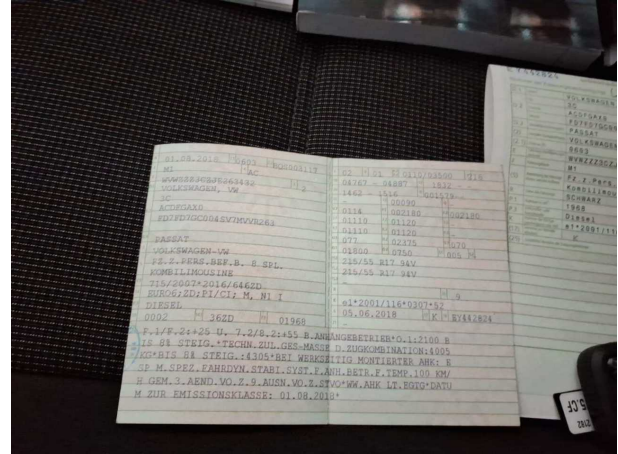 01.08.2018 0603
M1 AC
VOLKSWAGEN, VW
3C
ACDFGAX0
PASSAT
VOLKSWAGEN-VW
FZ.Z.PERS.BEF.B. 8 SPL.
KOMBILIMOUSINE
715/2007*2016/646ZD
EURO6;ZD;PI/CI; M, N1 I
DIESEL
0002 36ZD 01968
02 01 0110/03500
04767 - 04887 1832 -
1462 - 1516
00090
0114 002180 002180
01110 01120 -
01110 01120 -
077 02375 070
01800 0750 005
215/55 R17 94V
215/55 R17 94V
-
e1*2001/116*0307*52
05.06.2018 K EY442824
F.1/F.2:+25 U. 7.2/8.2:+55 B.ANHÄNGEBETRIEB*O.1:2100 B
IS 8% STEIG.*TECHN.ZUL.GES-MASSE D.ZUGKOMBINATION:4005
KG*BIS 8% STEIG.:4305*BEI WERKSEITIG MONTIERTER AHK: E
SP M.SPEZ.FAHRDYN.STABI.SYST.F.ANH.BETR.F.TEMP.100 KM/
H GEM.3.AEND.VO.Z.9.AUSN.VO.Z.STVO*WW.AHK LT.EGTG*DATU
M ZUR EMISSIONSKLASSE: 01.08.2018*
EY442824
VOLKSWAGEN
3C
PASSAT
VOLKSWAGEN
0603
M1
Fz.z.Pers.
Kombilimou
SCHWARZ
1968
Diesel
e1*2001/11